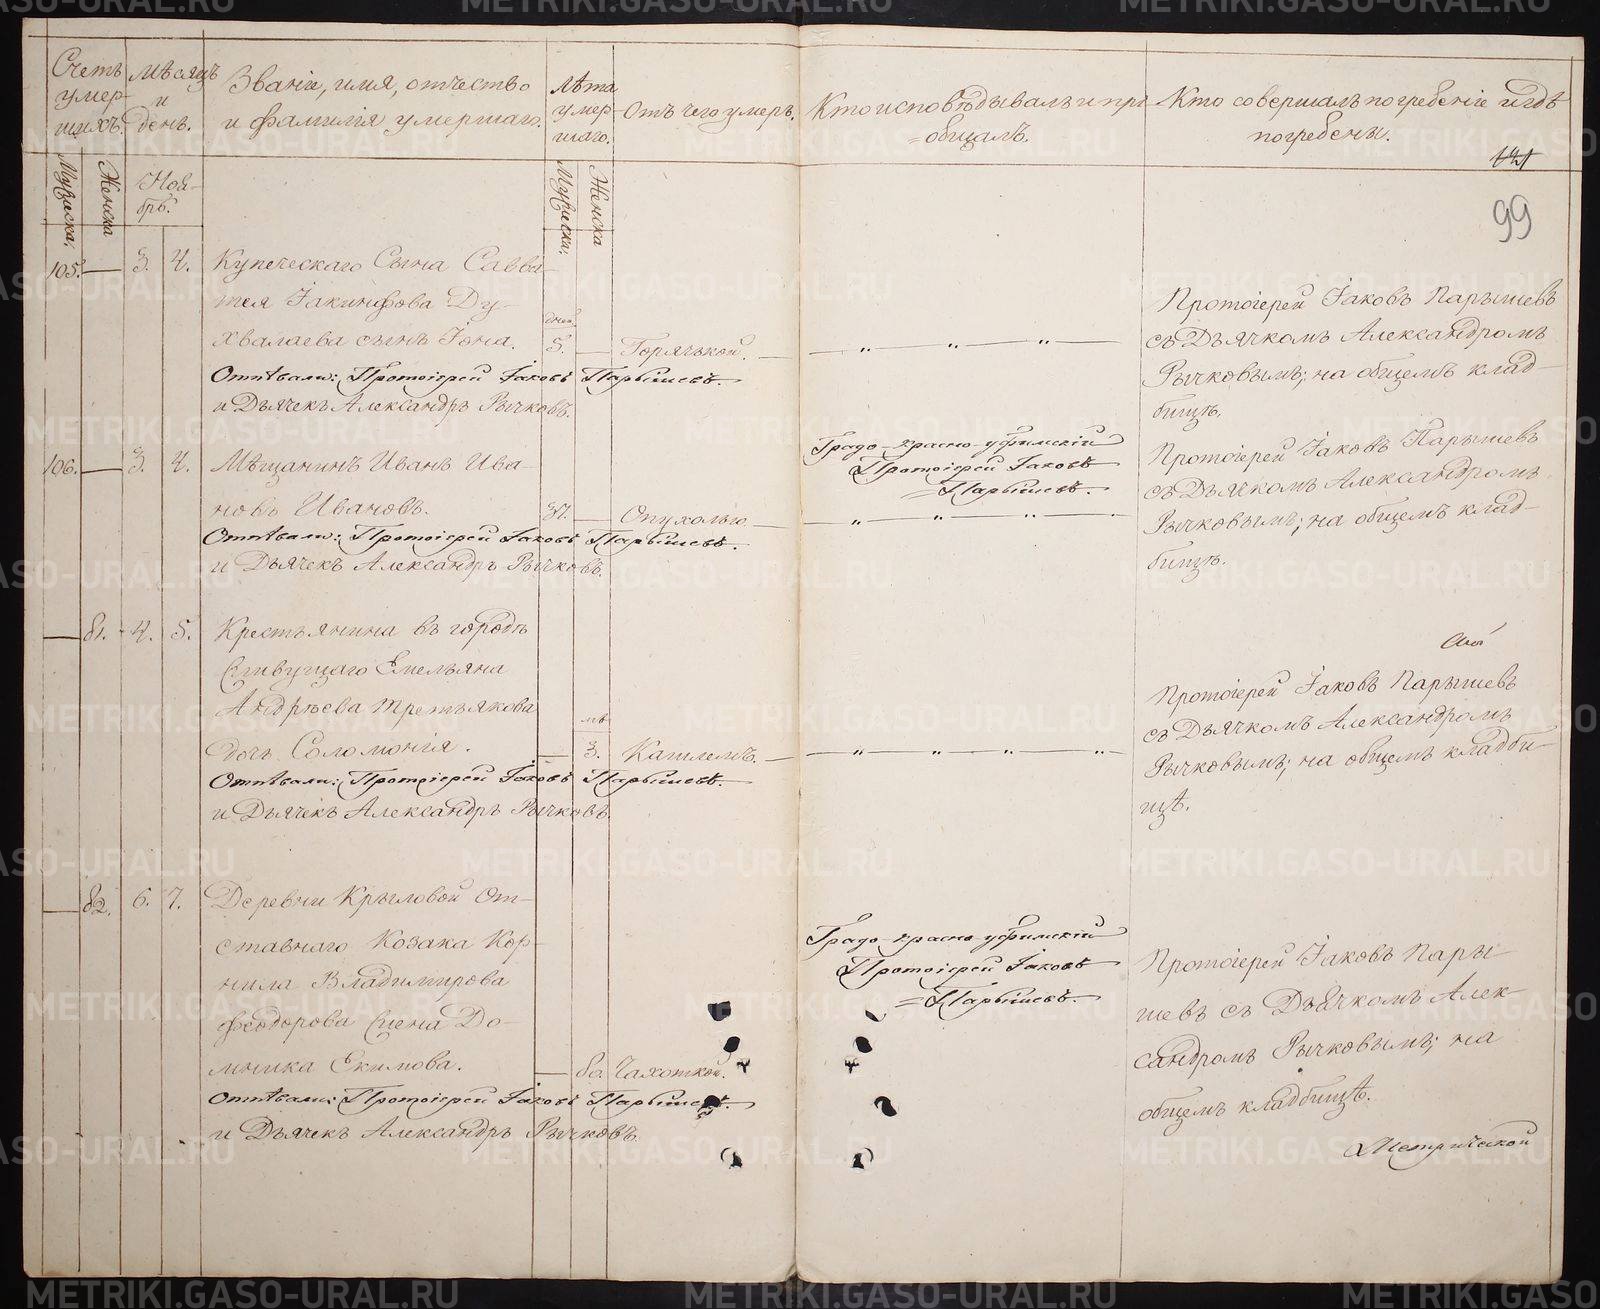 Счетъ умер-шихъ.
Мѣсяцъ и день.
Званіе, имя, отчество и фамилія умершаго.
Лѣта умер-шаго.
Отъ чего умеръ.
Кто исповѣдывалъ и прі-
=общалъ.
Кто совершалъ погребеніе и гдѣ
погребены.
Мужеска.
Женска
Ноя-
брь.
Мужеска.
Женска
121
99
105. — 3. 4. Купеческаго Сына Савва-
тея Іакинфова Ду-
хвалаева сынъ Іона. дней 5. — Горячкой. —
Отпѣвали: Протоіерей Іаковъ Парышевъ.
и Дьячекъ Александръ Рычковъ.
Протоіерей Іаковъ Парышевъ
съ Дьячкомъ Александромъ
Рычковымъ; на общемъ клад-
бищѣ.
106. — 3. 4. Мѣщанинъ Иванъ Ива-
новъ Ивановъ. 37. — Опухолью. —
Отпѣвали: Протоіерей Іаковъ Парышевъ.
и Дьячекъ Александръ Рычковъ.
Градо-Красно-уфимскій
Протоіерей Іаковъ
=Парышевъ.
Протоіерей Іаковъ Парышевъ
съ Дьячкомъ Александромъ
Рычковымъ; на общемъ клад-
бищѣ.
— 81. 4. 5. Крестьянина въ городѣ
живущаго Емельяна
Андрѣева Третьякова
дочь Соломонія. — мѣ 3. Кашлемъ. —
Отпѣвали: Протоіерей Іаковъ Парышевъ.
и Дьячекъ Александръ Рычковъ.
Протоіерей Іаковъ Парышевъ
съ Дьячкомъ Александромъ
Рычковымъ; на общемъ кладби-
щѣ.
— 82. 6. 7. Деревни Крыловой От-
ставнаго Козака Кор-
нила Владимирова
Феодорова жена До-
мника Екимова. — 80. Чахоткой.
Отпѣвали: Протоіерей Іаковъ Парышевъ.
и Дьячекъ Александръ Рычковъ.
Градо-Красно уфимскій
Протоіерей Іаковъ
=Парышевъ.
Протоіерей Іаковъ Пары-
шевъ съ Дьячкомъ Алек-
сандромъ Рычковымъ; на
общемъ кладбищѣ.
Метрической
METRIKI.GASO-URAL.RU